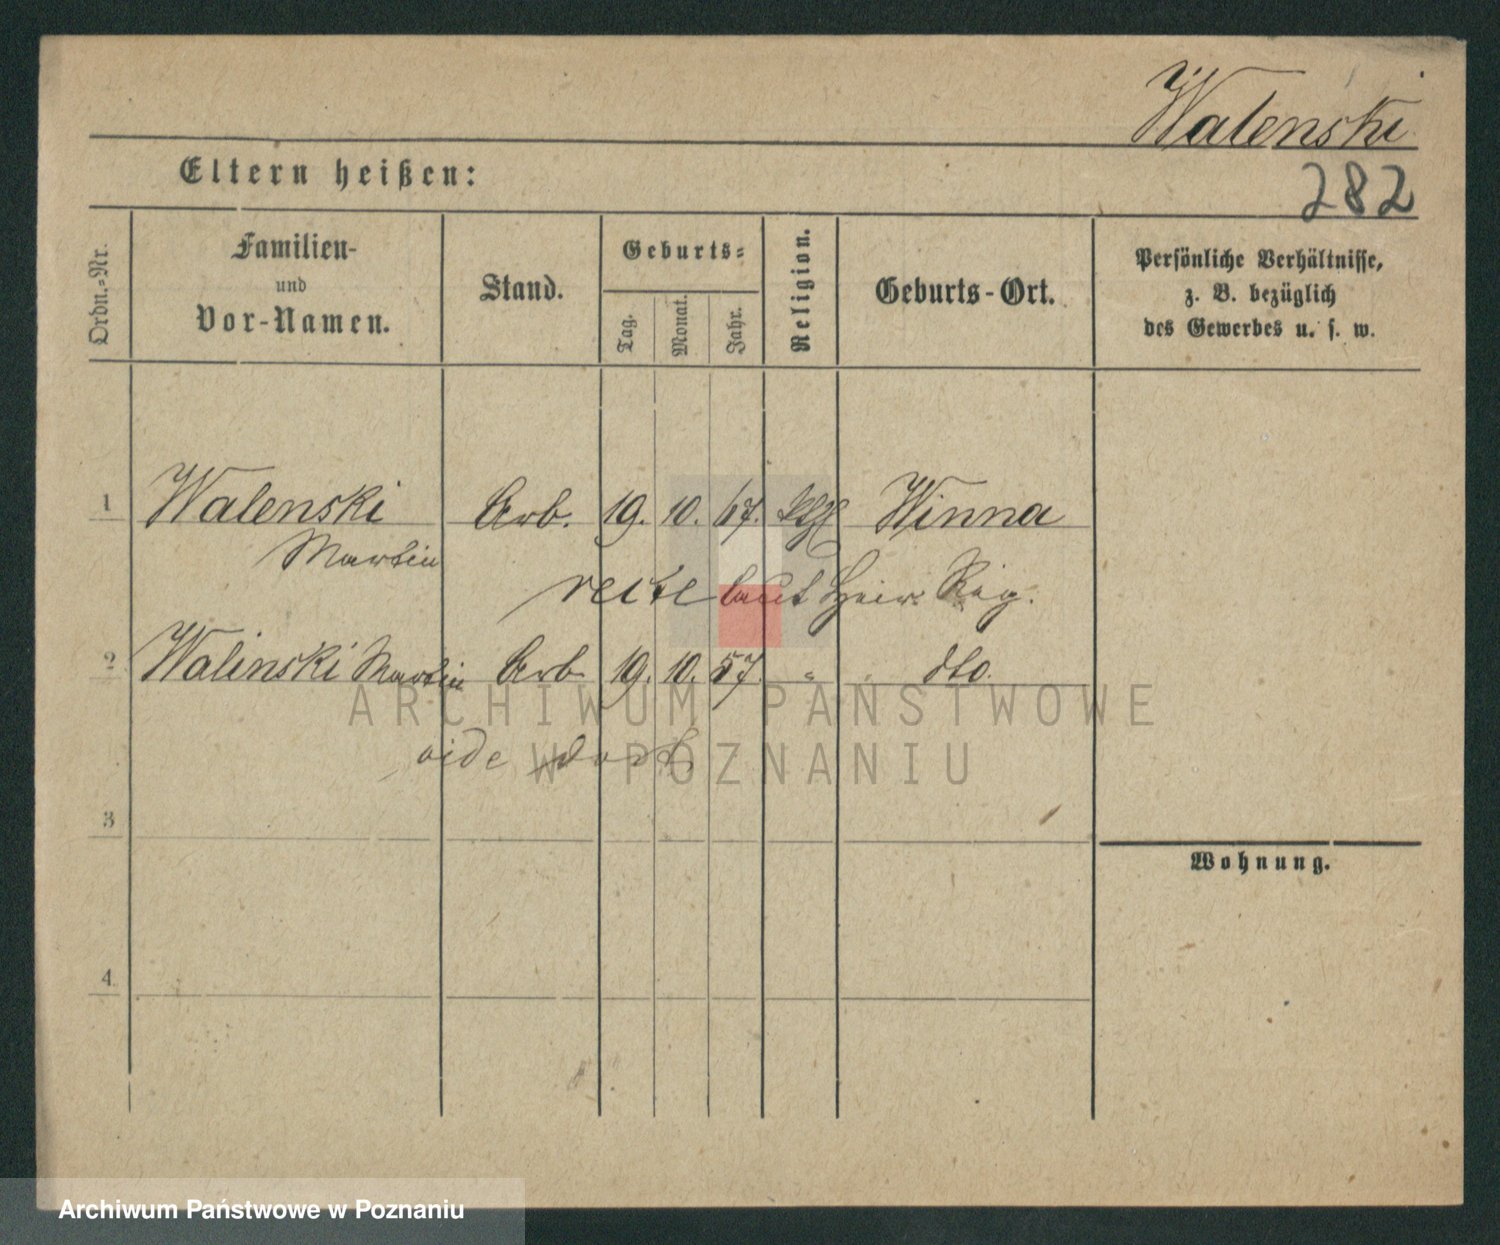 Walenski
Eltern heißen:
282
Ordn.-Nr.
Familien-
und
Vor-Namen.
Stand.
Geburts-
Tag.
Monat.
Jahr.
Religion.
Geburts-Ort.
Persönliche Verhältnisse,
z. B. bezüglich
des Gewerbes u. s. w.
1 Walenski Arb. 19. 10. 67. Winna
Martin
recte laut Heir. Reg.
2 Walinski Martin Arb. 19. 10. 57. " dto.
ARCHIWUM PAŃSTWOWE
W POZNANIU
vide dort
3
Wohnung.
4
Archiwum Państwowe w Poznaniu